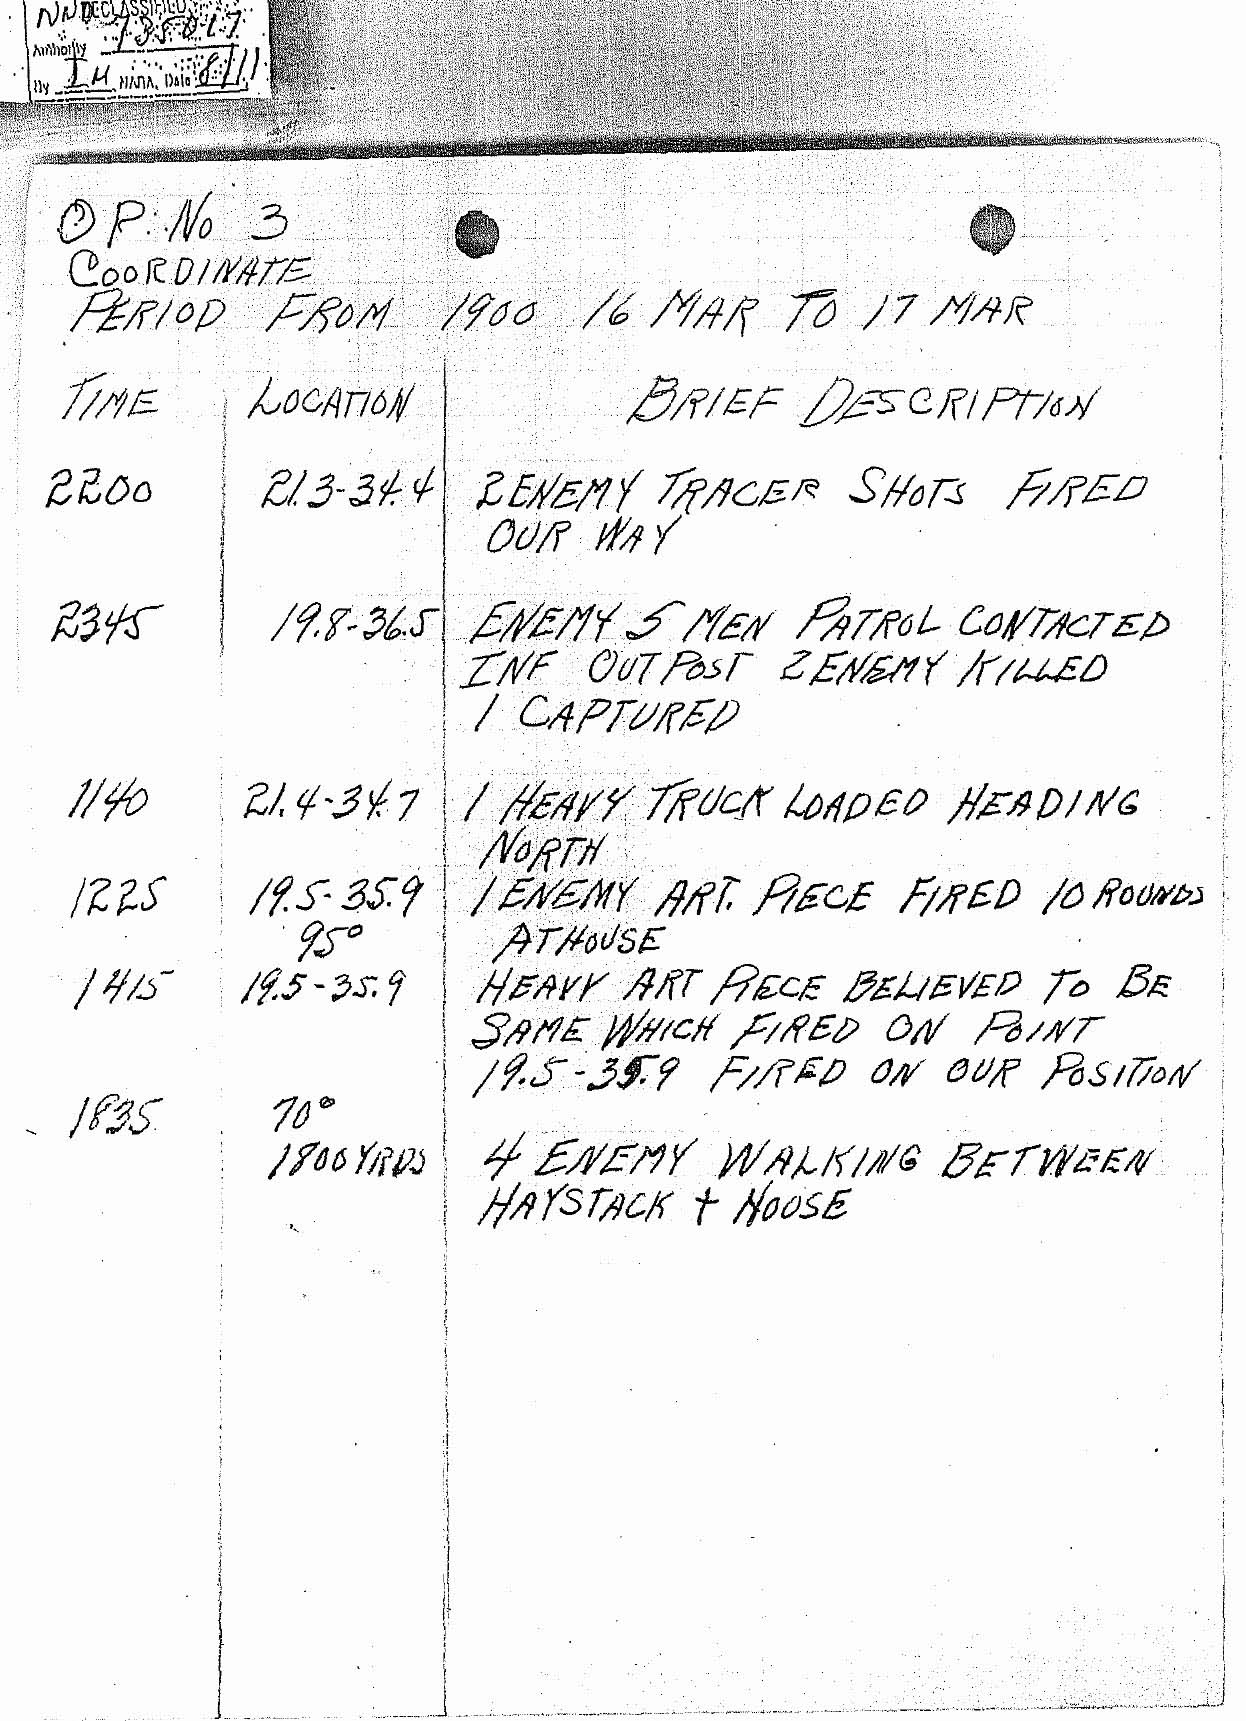 DECLASSIFIED
Authority 735017
By IH NARA, Date 8/11
O P. No 3
COORDINATE
PERIOD FROM 1900 16 MAR TO 17 MAR
TIME LOCATION BRIEF DESCRIPTION
2200 21.3-34.4 2 ENEMY TRACER SHOTS FIRED
OUR WAY
2345 19.8-36.5 ENEMY 5 MEN PATROL CONTACTED
INF OUTPOST 2 ENEMY KILLED
1 CAPTURED
1140 21.4-34.7 1 HEAVY TRUCK LOADED HEADING
NORTH
1225 19.5-35.9 1 ENEMY ART. PIECE FIRED 10 ROUNDS
95° AT HOUSE
1415 19.5-35.9 HEAVY ART PIECE BELIEVED TO BE
SAME WHICH FIRED ON POINT
19.5-35.9 FIRED ON OUR POSITION
1835 70°
1800 YRDS 4 ENEMY WALKING BETWEEN
HAYSTACK + HOUSE